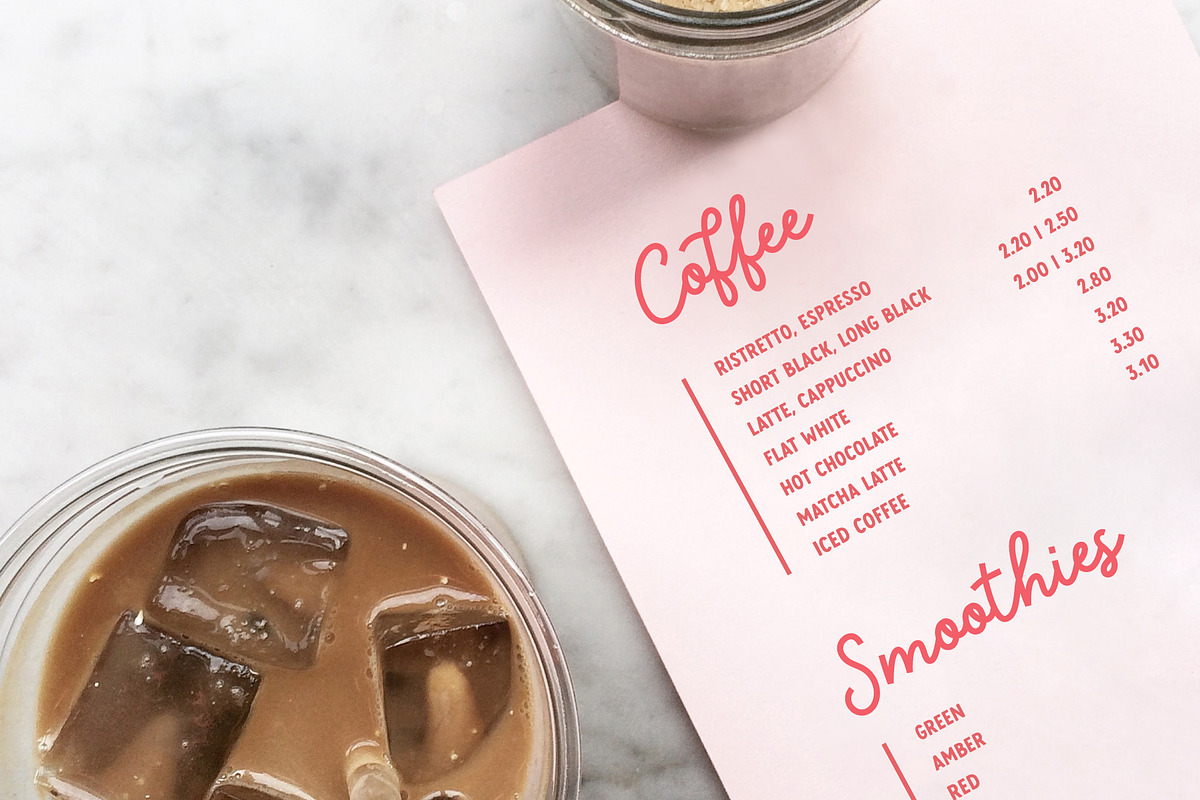 Coffee
RISTRETTO, ESPRESSO 2.20
SHORT BLACK, LONG BLACK 2.20 | 2.50
LATTE, CAPPUCCINO 2.00 | 3.20
FLAT WHITE 2.80
HOT CHOCOLATE 3.20
MATCHA LATTE 3.30
ICED COFFEE 3.10
Smoothies
GREEN
AMBER
RED